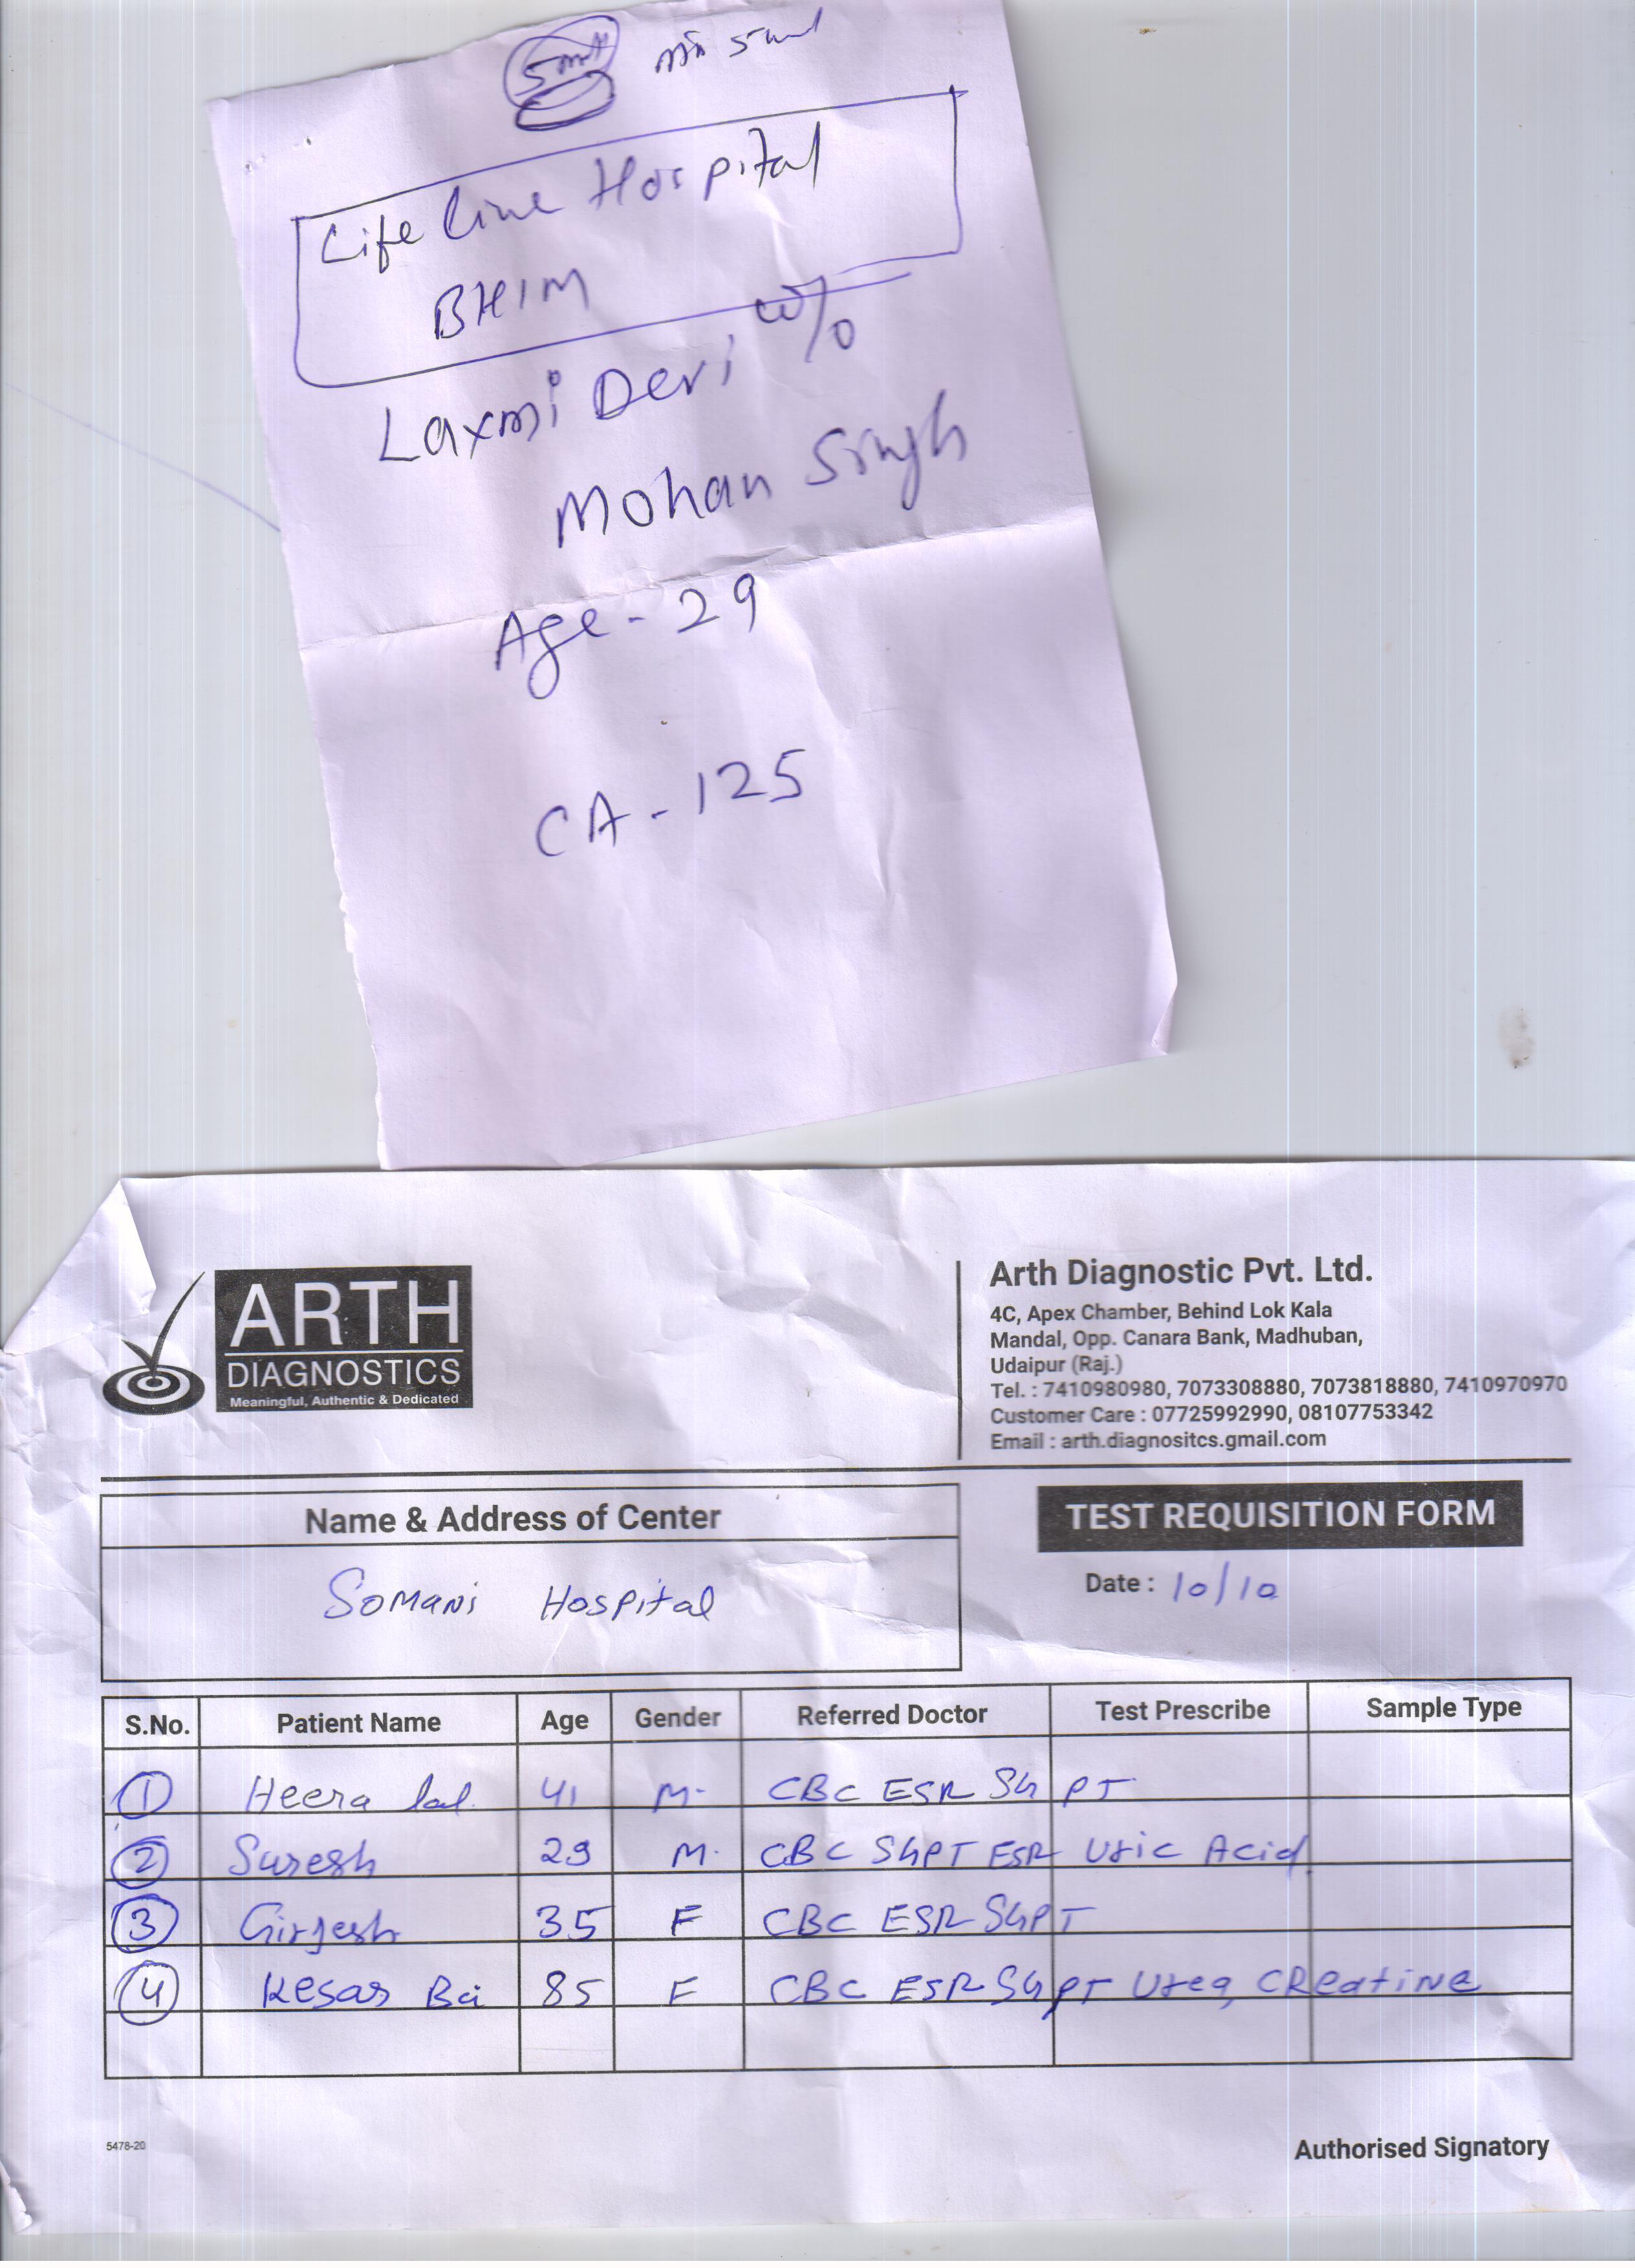 5ml
5ml
Life line Hospital
BHIM
Laxmi Devi w/o
Mohan Singh
Age - 29
CA - 125
ARTH
DIAGNOSTICS
Meaningful, Authentic & Dedicated
Arth Diagnostic Pvt. Ltd.
4C, Apex Chamber, Behind Lok Kala
Mandal, Opp. Canara Bank, Madhuban,
Udaipur (Raj.)
Tel. : 7410980980, 7073308880, 7073818880, 7410970970
Customer Care : 07725992990, 08107753342
Email : arth.diagnositcs.gmail.com
Name & Address of Center
TEST REQUISITION FORM
Somani Hospital
Date : 10/10
S.No. Patient Name Age Gender Referred Doctor Test Prescribe Sample Type
1 Heera lal. 41 M. CBC ESR SGPT
2 Suresh 29 M. CBC SGPT ESR Uric Acid
3 Girjesh 35 F CBC ESR SGPT
4 Kesar Bai 85 F CBC ESR SGPT Urea, CReatine
5478-20
Authorised Signatory